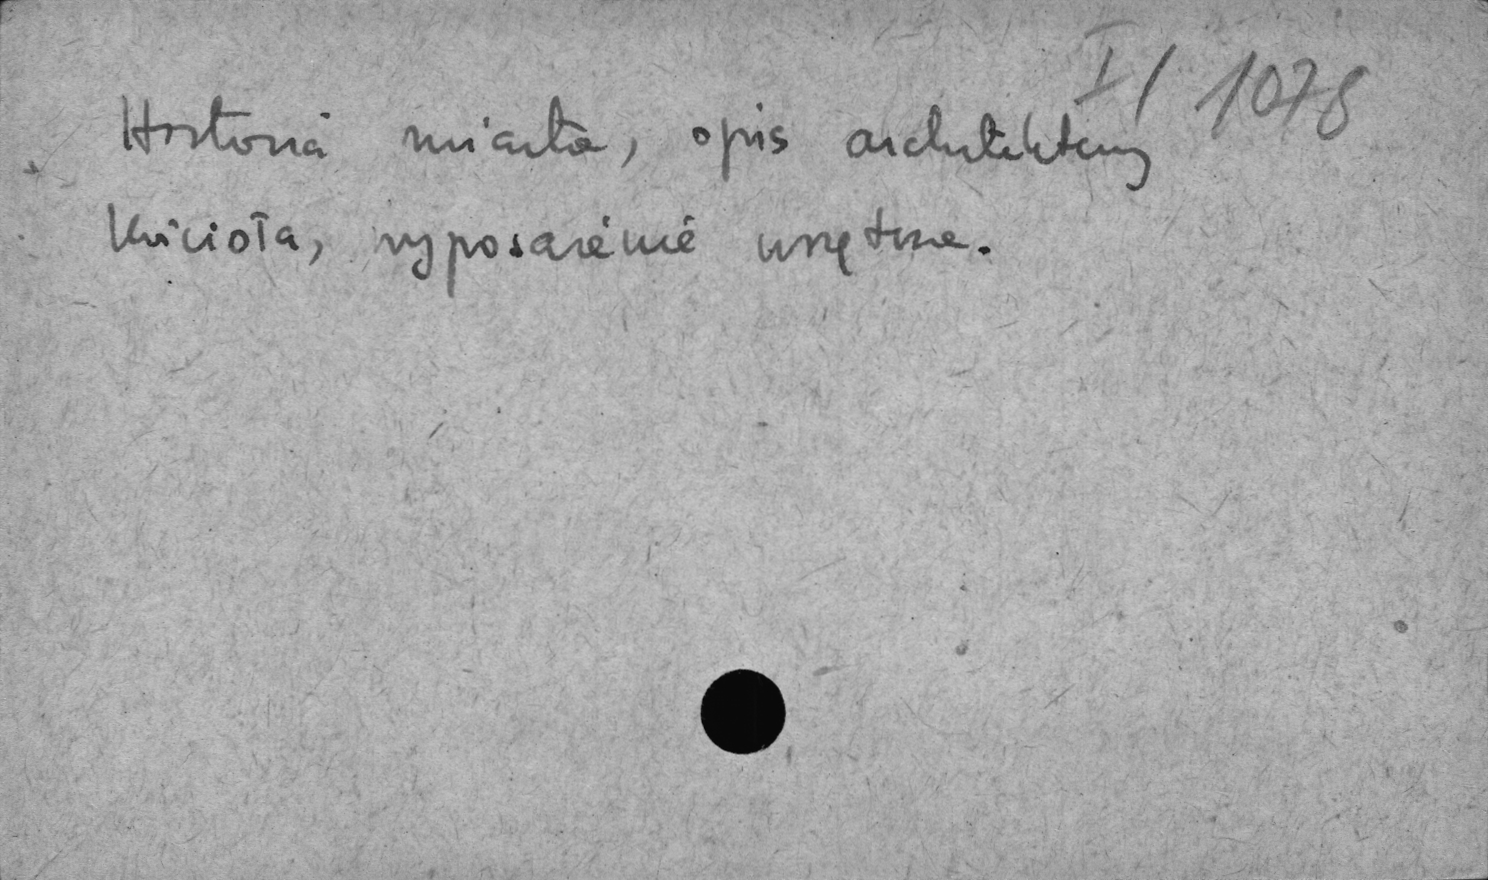 I/ 1078
Historia miasta, opis architektury
Kościoła, wyposażenie wnętrza.